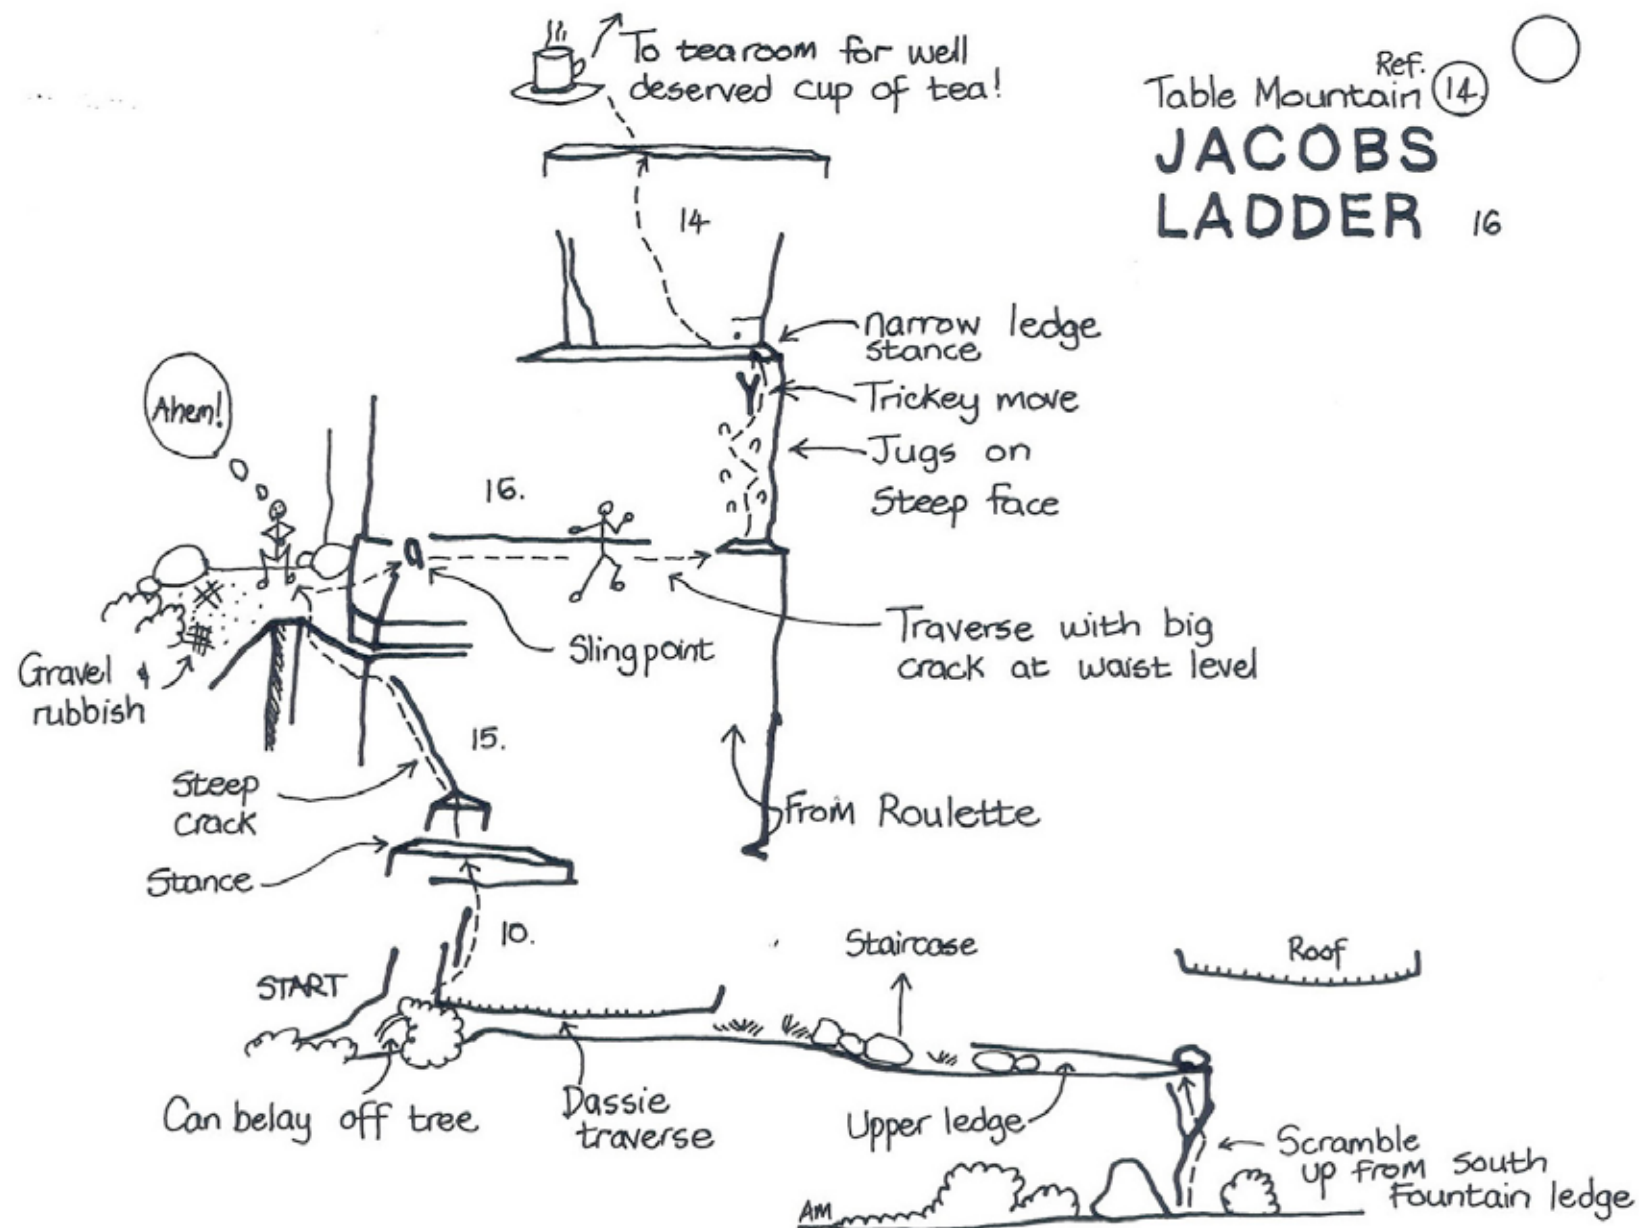 To tearoom for well
deserved cup of tea!
Ref.
Table Mountain 14
JACOBS
LADDER 16
14
narrow ledge
stance
Trickey move
Jugs on
Steep face
Ahem!
16.
Traverse with big
crack at waist level
Slingpoint
Gravel &
rubbish
15.
Steep
crack
From Roulette
Stance
10.
Staircase
Roof
START
Can belay off tree
Dassie
traverse
Upper ledge
Scramble
up from South
Fountain ledge
AM